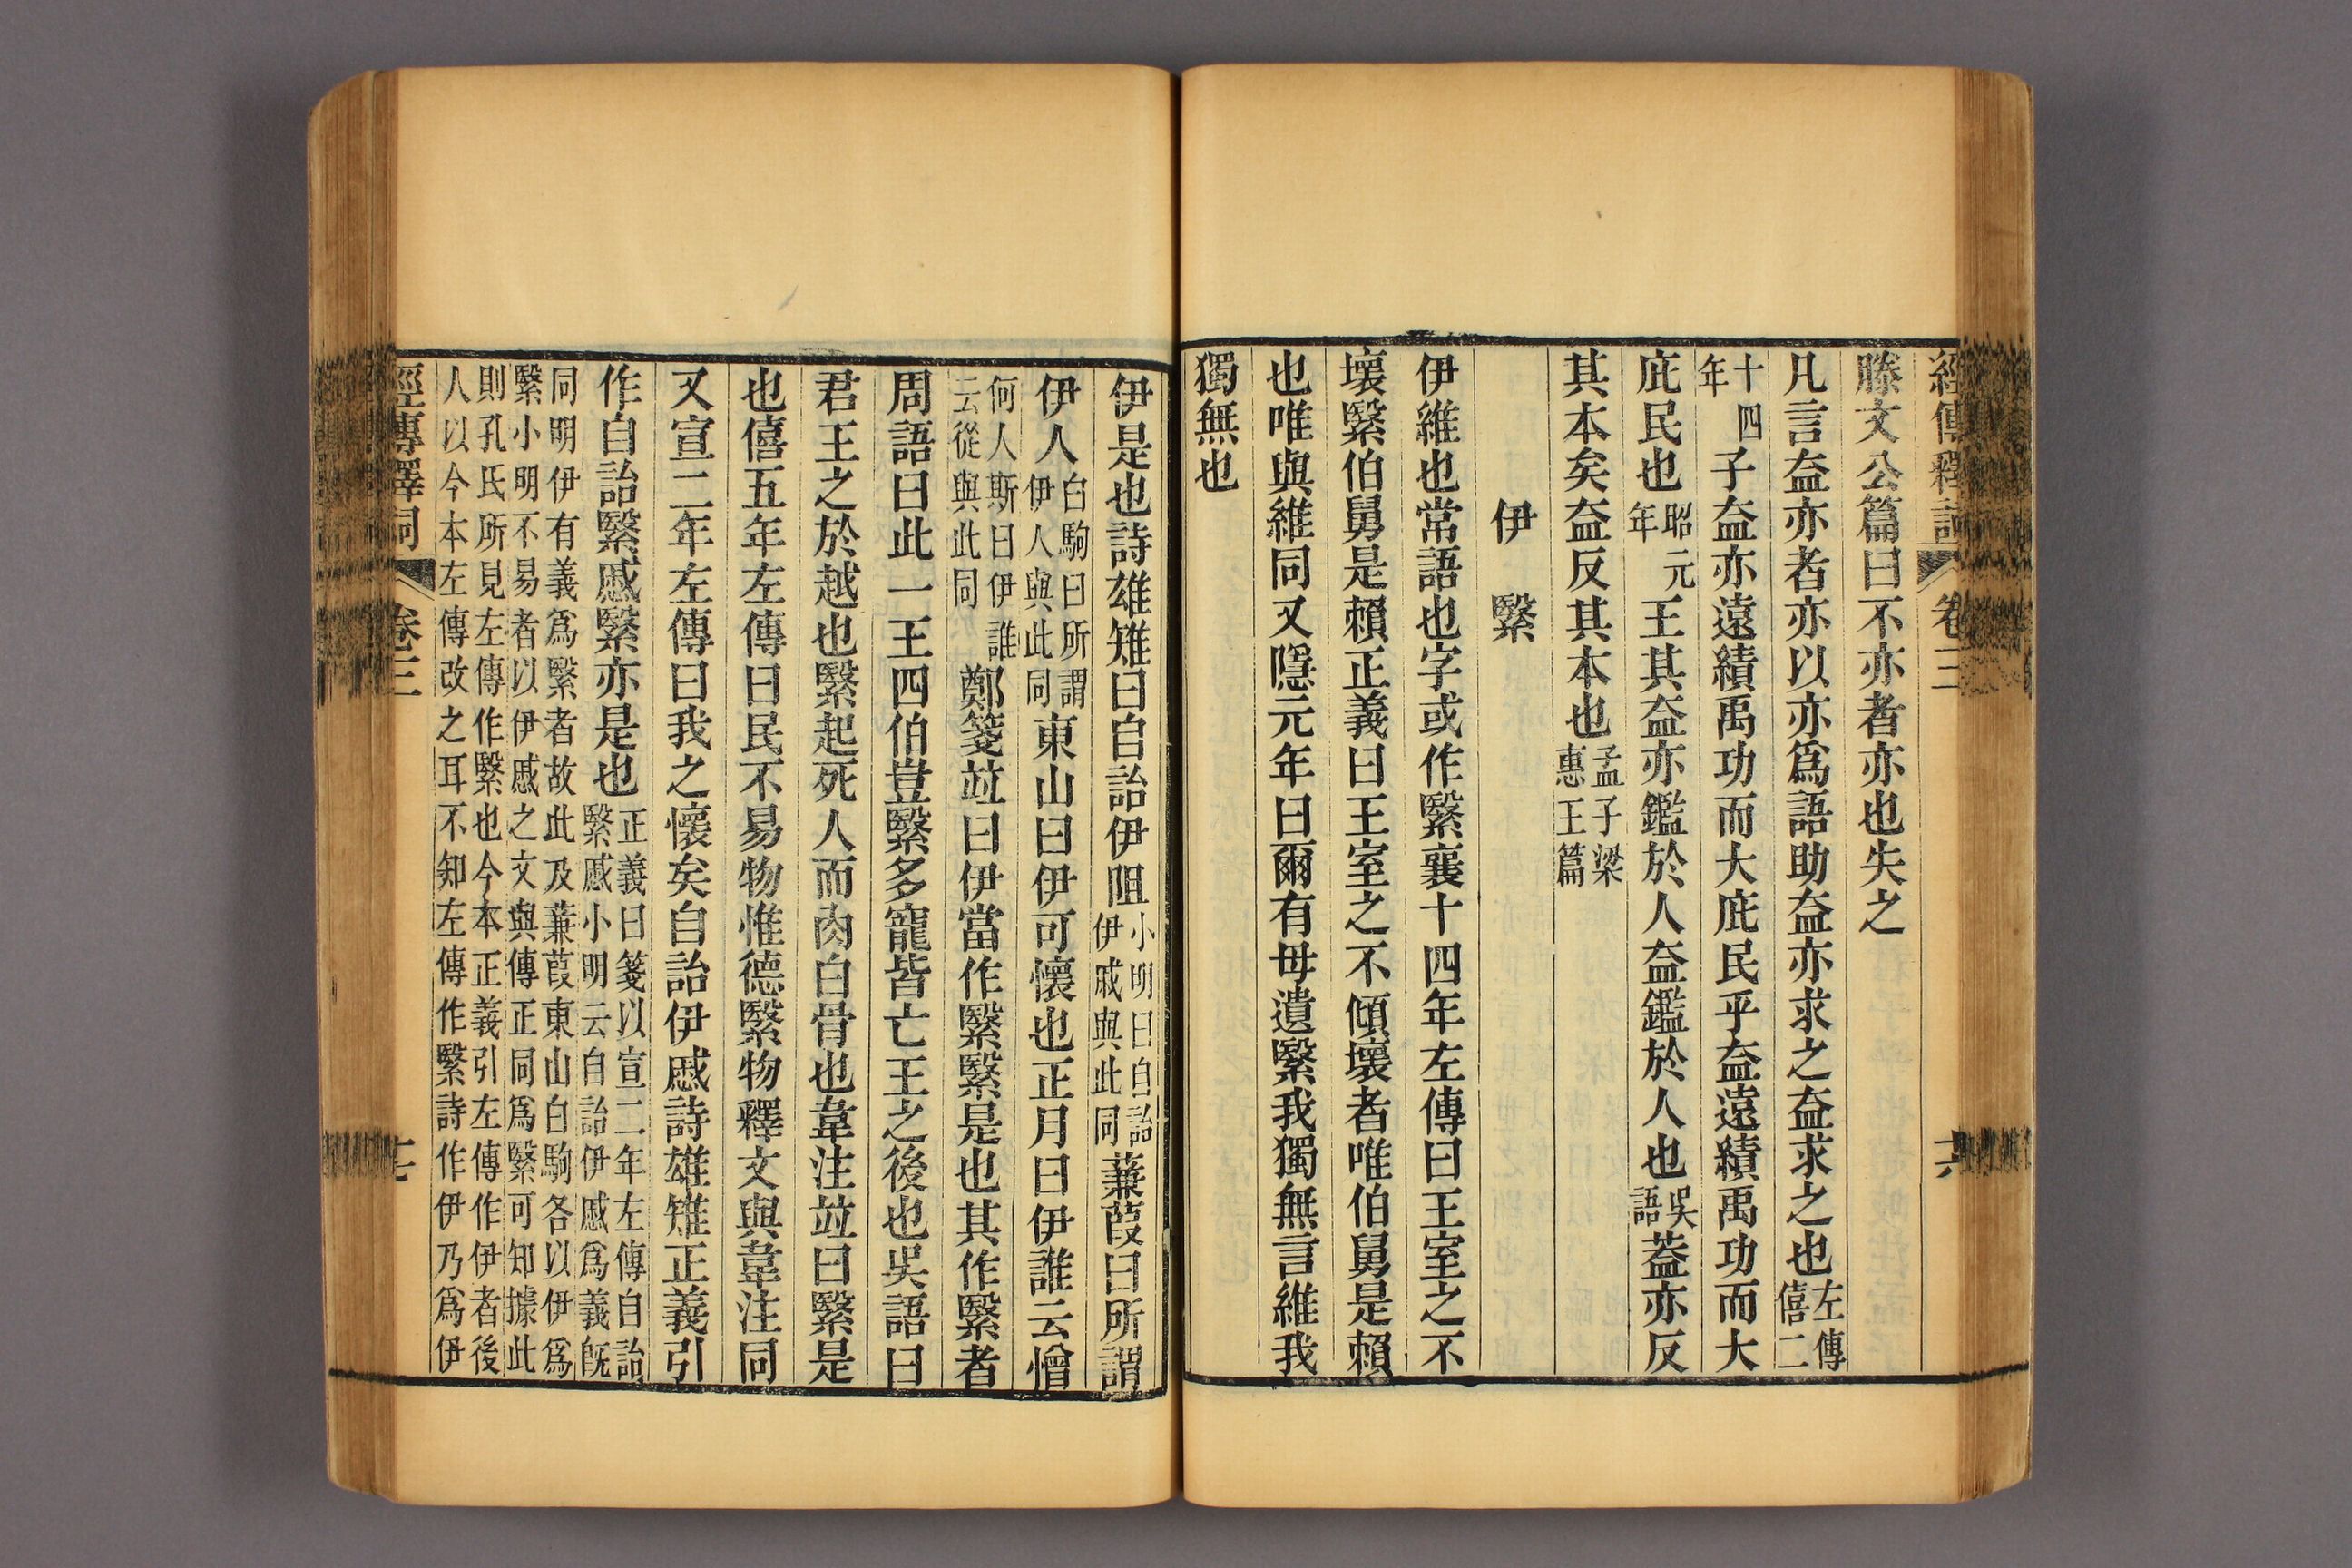 經傳釋詞 卷三
滕文公篇曰不亦者亦也失之
凡言盇亦者亦以亦爲語助盇亦求之盇求之也左傳僖二
十四年子盇亦遠績禹功而大庇民乎盇遠績禹功而大
庇民也昭元年王其盇亦鑑於人盇鑑於人也吳語葢亦反
其本矣盇反其本也孟子梁惠王篇
伊 繄
伊維也常語也字或作繄襄十四年左傳曰王室之不
壞繄伯舅是賴正義曰王室之不傾壞者唯伯舅是賴
也唯與維同又隱元年曰爾有母遺繄我獨無言維我
獨無也
伊是也詩雄雉曰自詒伊阻小明曰自詒伊戚與此同蒹葭曰所謂
伊人白駒曰所謂伊人與此同東山曰伊可懷也正月曰伊誰云憎
何人斯曰伊誰云從與此同鄭箋竝曰伊當作繄繄是也其作繄者
周語曰此一王四伯豈繄多寵皆亡王之後也吳語曰
君王之於越也繄起死人而肉白骨也韋注竝曰繄是
也僖五年左傳曰民不易物惟德繄物釋文與韋注同
又宣二年左傳曰我之懷矣自詒伊慼詩雄雉正義引
作自詒繄慼繄亦是也正義曰箋以宣二年左傳自詒繄慼小明云自詒伊慼爲義旣
同明伊有義爲繄者故此及蒹葭東山白駒各以伊爲繄小明不易者以伊慼之文與傳正同爲繄可知據此
則孔氏所見左傳作繄也今本正義引左傳作伊者後人以今本左傳改之耳不知左傳作繄詩作伊乃爲伊
經傳釋詞 卷三